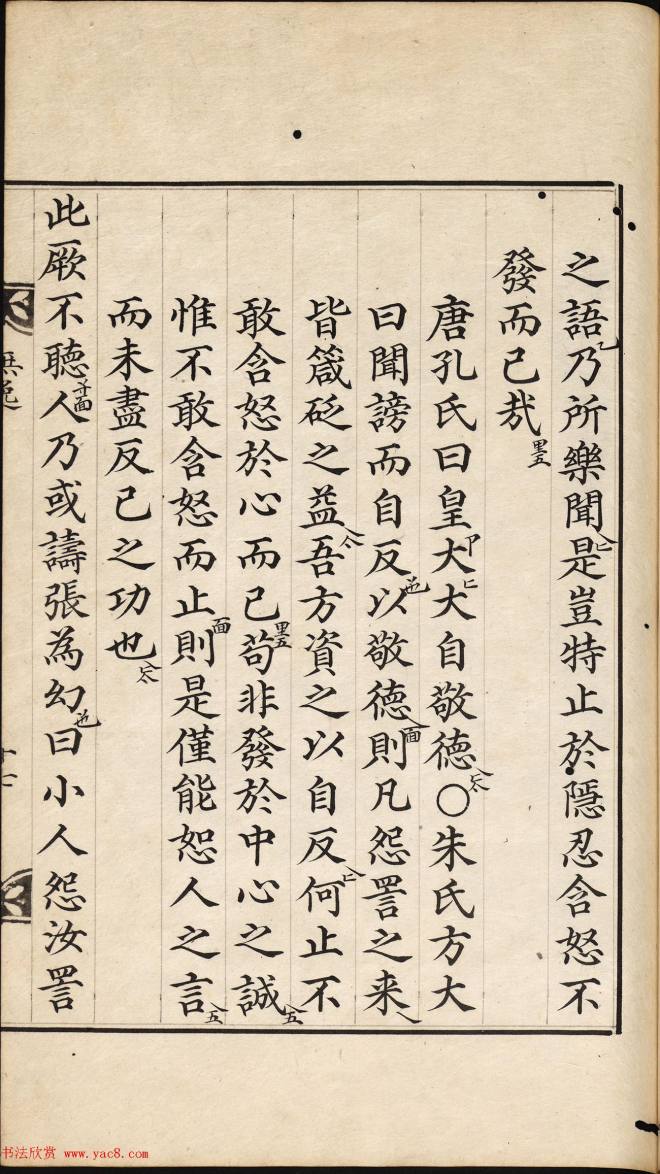 之語乃所樂聞是豈特止於隱忍含怒不
發而已㢤
唐孔氏曰皇大大自敬德○朱氏方大
曰聞謗而自反以敬德則凡怨詈之来
皆箴砭之益吾方資之以自反何止不
敢含怒於心而已苟非發於中心之誠
惟不敢含怒而止則是僅能恕人之言
而未盡反己之功也
此厥不聽人乃或譸張為幻曰小人怨汝詈
無逸
十七
书法欣赏 www.yac8.com